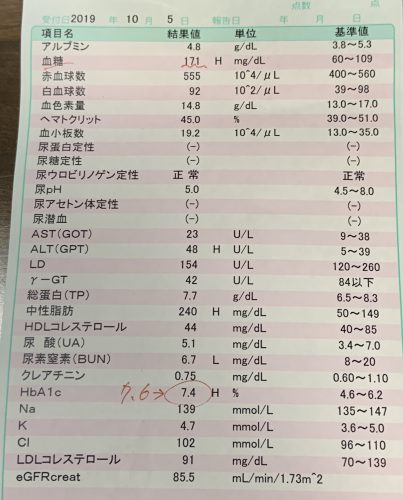 点数 点
受付日 2019 年 10 月 5 日 報告日 年 月 日
項目名 結果値 単位 基準値
アルブミン 4.8 g/dL 3.8～5.3
血糖 171 H mg/dL 60～109
赤血球数 555 10^4/μL 400～560
白血球数 92 10^2/μL 39～98
血色素量 14.8 g/dL 13.0～17.0
ヘマトクリット 45.0 % 39.0～51.0
血小板数 19.2 10^4/μL 13.0～35.0
尿蛋白定性 (-) (-)
尿糖定性 (-) (-)
尿ウロビリノゲン定性 正常 正常
尿pH 5.0 4.5～8.0
尿アセトン体定性 (-) (-)
尿潜血 (-) (-)
AST(GOT) 23 U/L 9～38
ALT(GPT) 48 H U/L 5～39
LD 154 U/L 120～260
γ-GT 42 U/L 84以下
総蛋白(TP) 7.7 g/dL 6.5～8.3
中性脂肪 240 H mg/dL 50～149
HDLコレステロール 44 mg/dL 40～85
尿 酸(UA) 5.1 mg/dL 3.4～7.0
尿素窒素(BUN) 6.7 L mg/dL 8～20
クレアチニン 0.75 mg/dL 0.60～1.10
HbA1c 7.6→ 7.4 H % 4.6～6.2
Na 139 mmol/L 135～147
K 4.7 mmol/L 3.6～5.0
Cl 102 mmol/L 96～110
LDLコレステロール 91 mg/dL 70～139
eGFRcreat 85.5 mL/min/1.73m^2